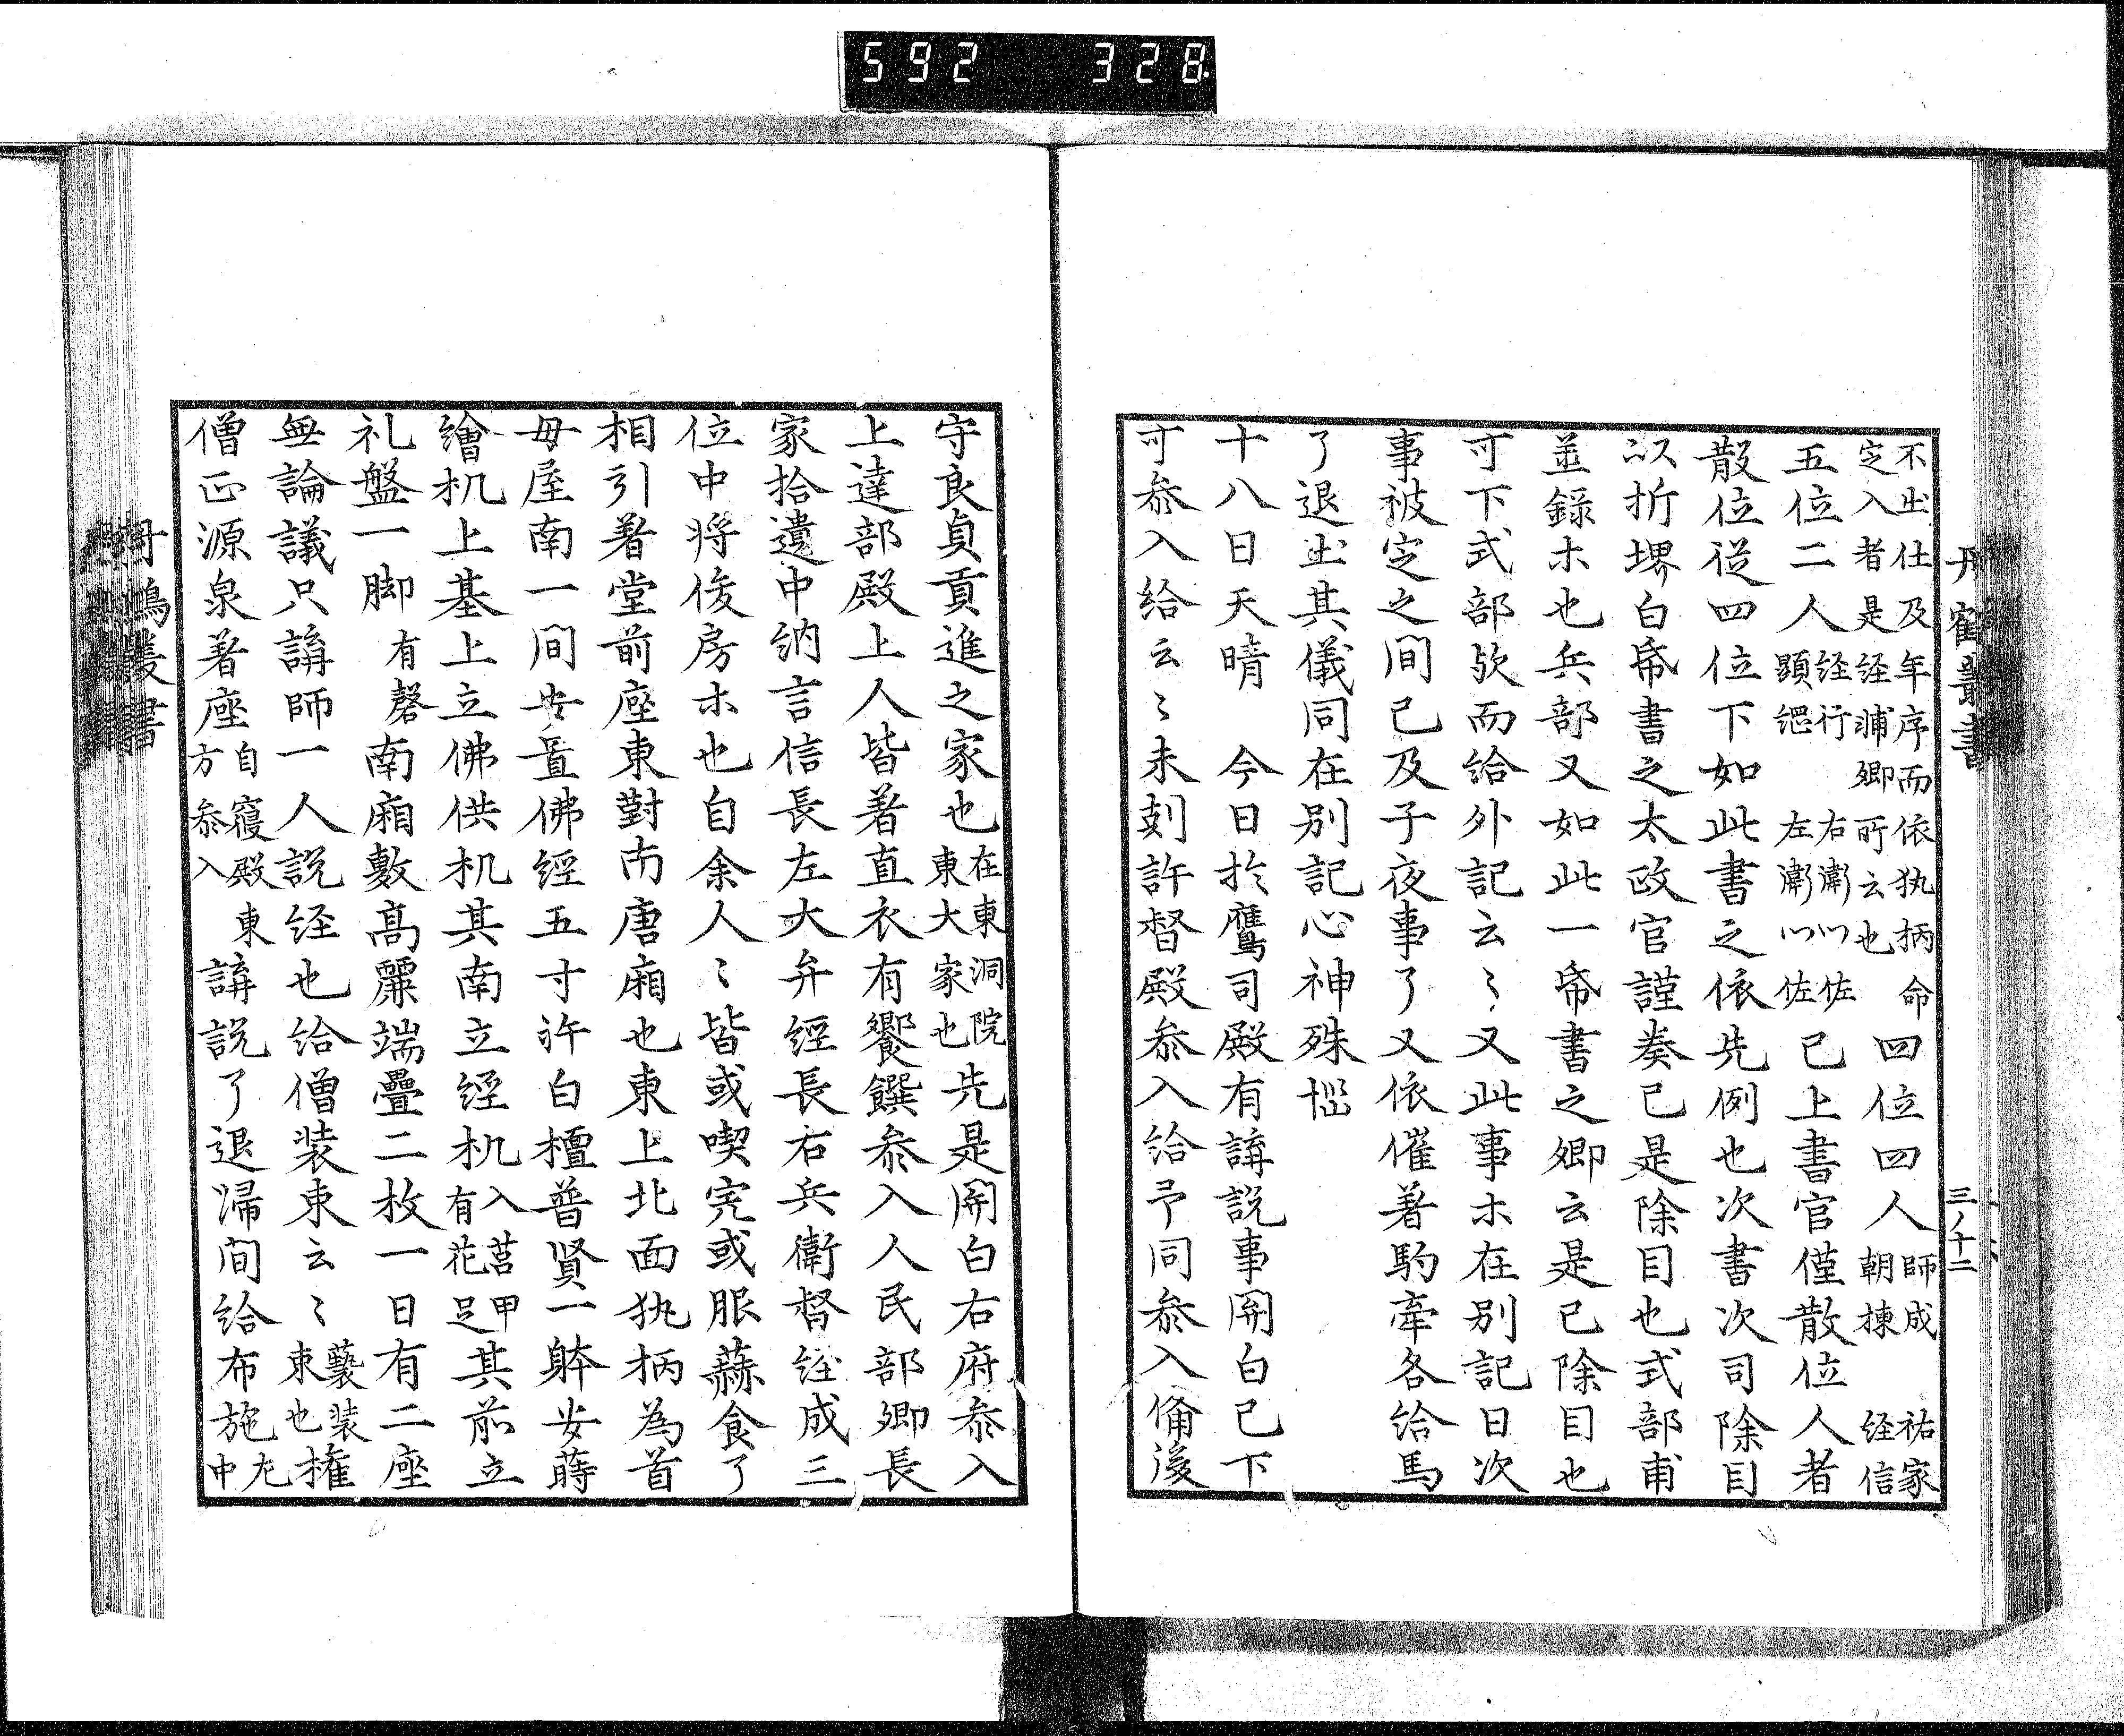 592 328
丹鶴叢書 三ノ十二
不出仕及年序而依执柄命
定入者是経浦卿所云也
四位四人
師成 祐家
朝棟 経信
五位二人
経行 右衛門佐
顕綱 左衛門佐
已上書官僅散位人者
散位従四位下如此書之依先例也次書次司除目
以折堺白帋書之太政官謹奏已是除目也式部甫
並録ホ也兵部又如此一帋書之卿云是已除目也
可下式部欤而給外記云〻又此事ホ在別記日次
事被定之間已及子夜事了又依催著駒牽各給馬
了退出其儀同在別記心神殊悩
十八日天晴 今日於鷹司殿有講説事関白已下
可参入給云〻未剋許督殿参入給予同参入備後
守良貞貢進之家也
在東洞院
東大家也
先是関白右府参入
上達部殿上人皆著直衣有饗饌参入人民部卿長
家拾遺中納言信長左大弁經長右兵衛督経成三
位中将俊房ホ也自余人〻皆或喫完或服蒜食了
相引著堂前座東對南唐廂也東上北面执柄為首
毋屋南一间安置佛經五寸許白檀普賢一躰安蒔
繪机上基上立佛供机其南立経机
入莒甲
有花足
其前立
礼盤一脚
有磬
南廂敷髙麗端疊二枚一日有二座
無論議只講師一人説経也給僧装束云〻
藝装
束也
権
僧正源泉著座
自寝殿東
方参入
講説了退帰间給布施
九
中